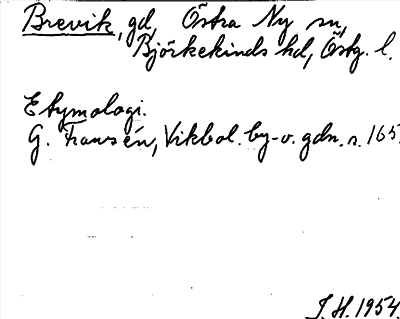 Brevik, gd, Östra Ny sn,
Björkekinds hd, Östg. l.
Etymologi.
G. Franzén, Vikbol. by- o. gdn. s. 165.
J.H. 1954.